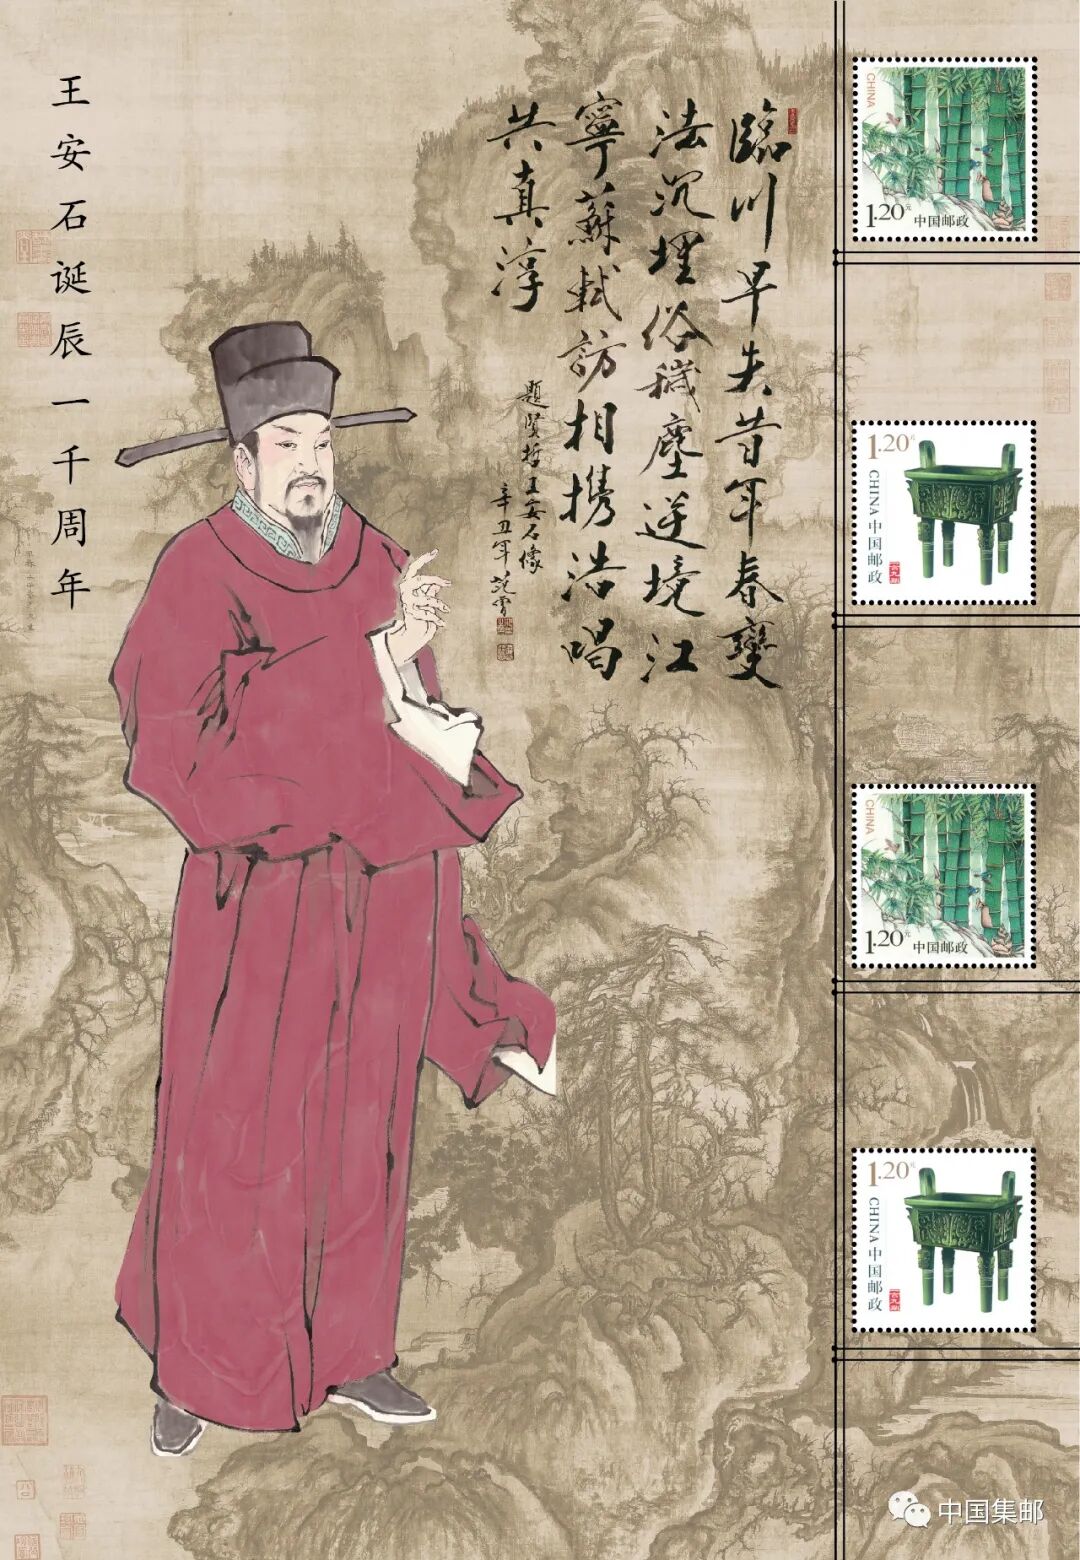 王安石诞辰一千周年
臨川早失昔年春變
法沉埋俗穢塵逆境江
寧蘇軾訪相攜浩唱
共真淳
題賢哲王安石像
辛丑年范曾
CHINA
1.20元 中国邮政
1.20元
CHINA中国邮政
CHINA
1.20元 中国邮政
1.20元
CHINA中国邮政
中国集邮